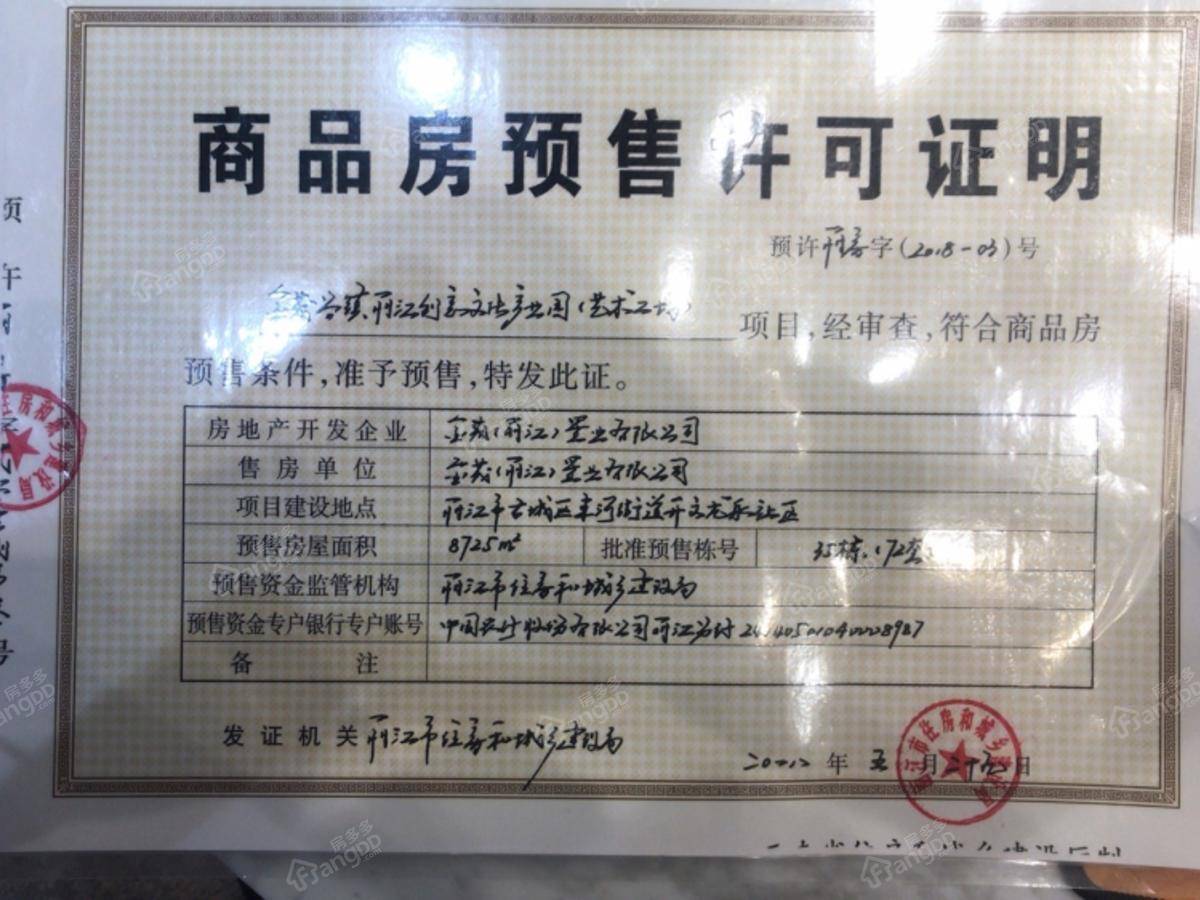 商品房预售许可证明
预许丽房字(2018-03)号
金茂谷镇丽江创意文化产业园(艺术工坊)项目,经审查,符合商品房
预售条件,准予预售,特发此证。
房地产开发企业 金茂(丽江)置业有限公司
售房单位 金茂(丽江)置业有限公司
项目建设地点 丽江市古城区束河街道开文龙泉社区
预售房屋面积 8725m² 批准预售栋号 35栋、172套
预售资金监管机构 丽江市住房和城乡建设局
预售资金专户银行专户账号 中国农行股份有限公司丽江分行
备注
发证机关 丽江市住房和城乡建设局
年 五月二十九日
丽江市住房和城乡建设局
房多多
FangDD